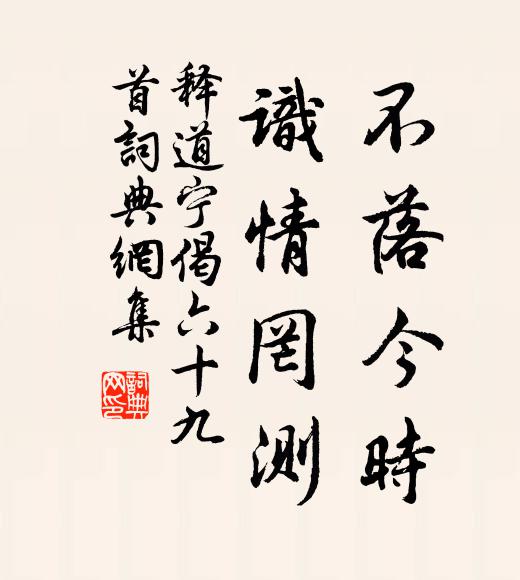 不落今時
識情罔測
释道宁偈六十九
首詞典網集
詞典
网印